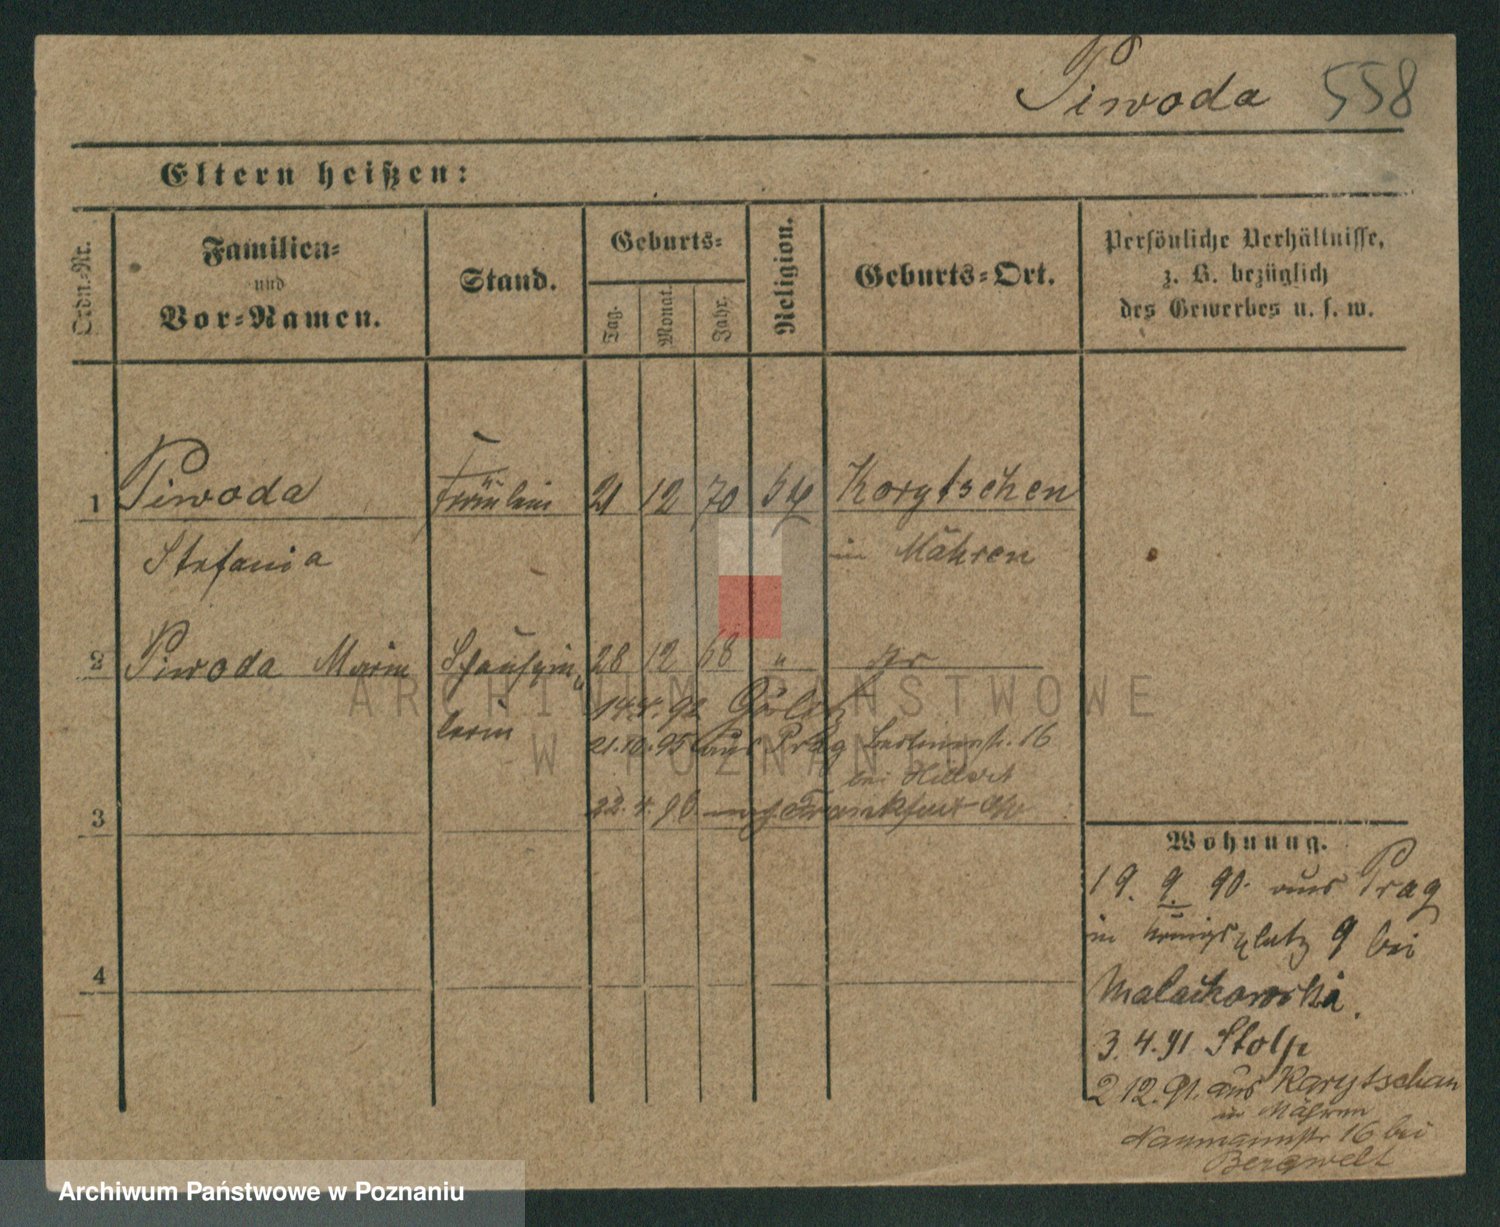 Piwoda 558
Eltern heißen:
Ordn.-Nr.
Familien-
und
Vor-Namen.
Stand.
Geburts-
Tag.
Monat.
Jahr.
Religion.
Geburts-Ort.
Persönliche Verhältnisse,
z. B. bezüglich
des Gewerbes u. s. w.
1 Piwoda Fräulein 21 12 70 Korytschen
Stefania in Mähren
2 Piwoda Marie Schauspie 28 12 68 "
lerin 14.4.92
21.10.95 aus Prag Berlinerstr. 16
bei
22.4.96 Frankfurt
3
4
Wohnung.
19. 9. 90. aus Prag
in Königsplatz 9 bei
Malachowski.
3.4.91 Stolp
2 12.91. aus Karytschan
in Mähren
Naumannstr 16 bei
Bergwelt
ARCHIWUM PAŃSTWOWE
W POZNANIU
Archiwum Państwowe w Poznaniu